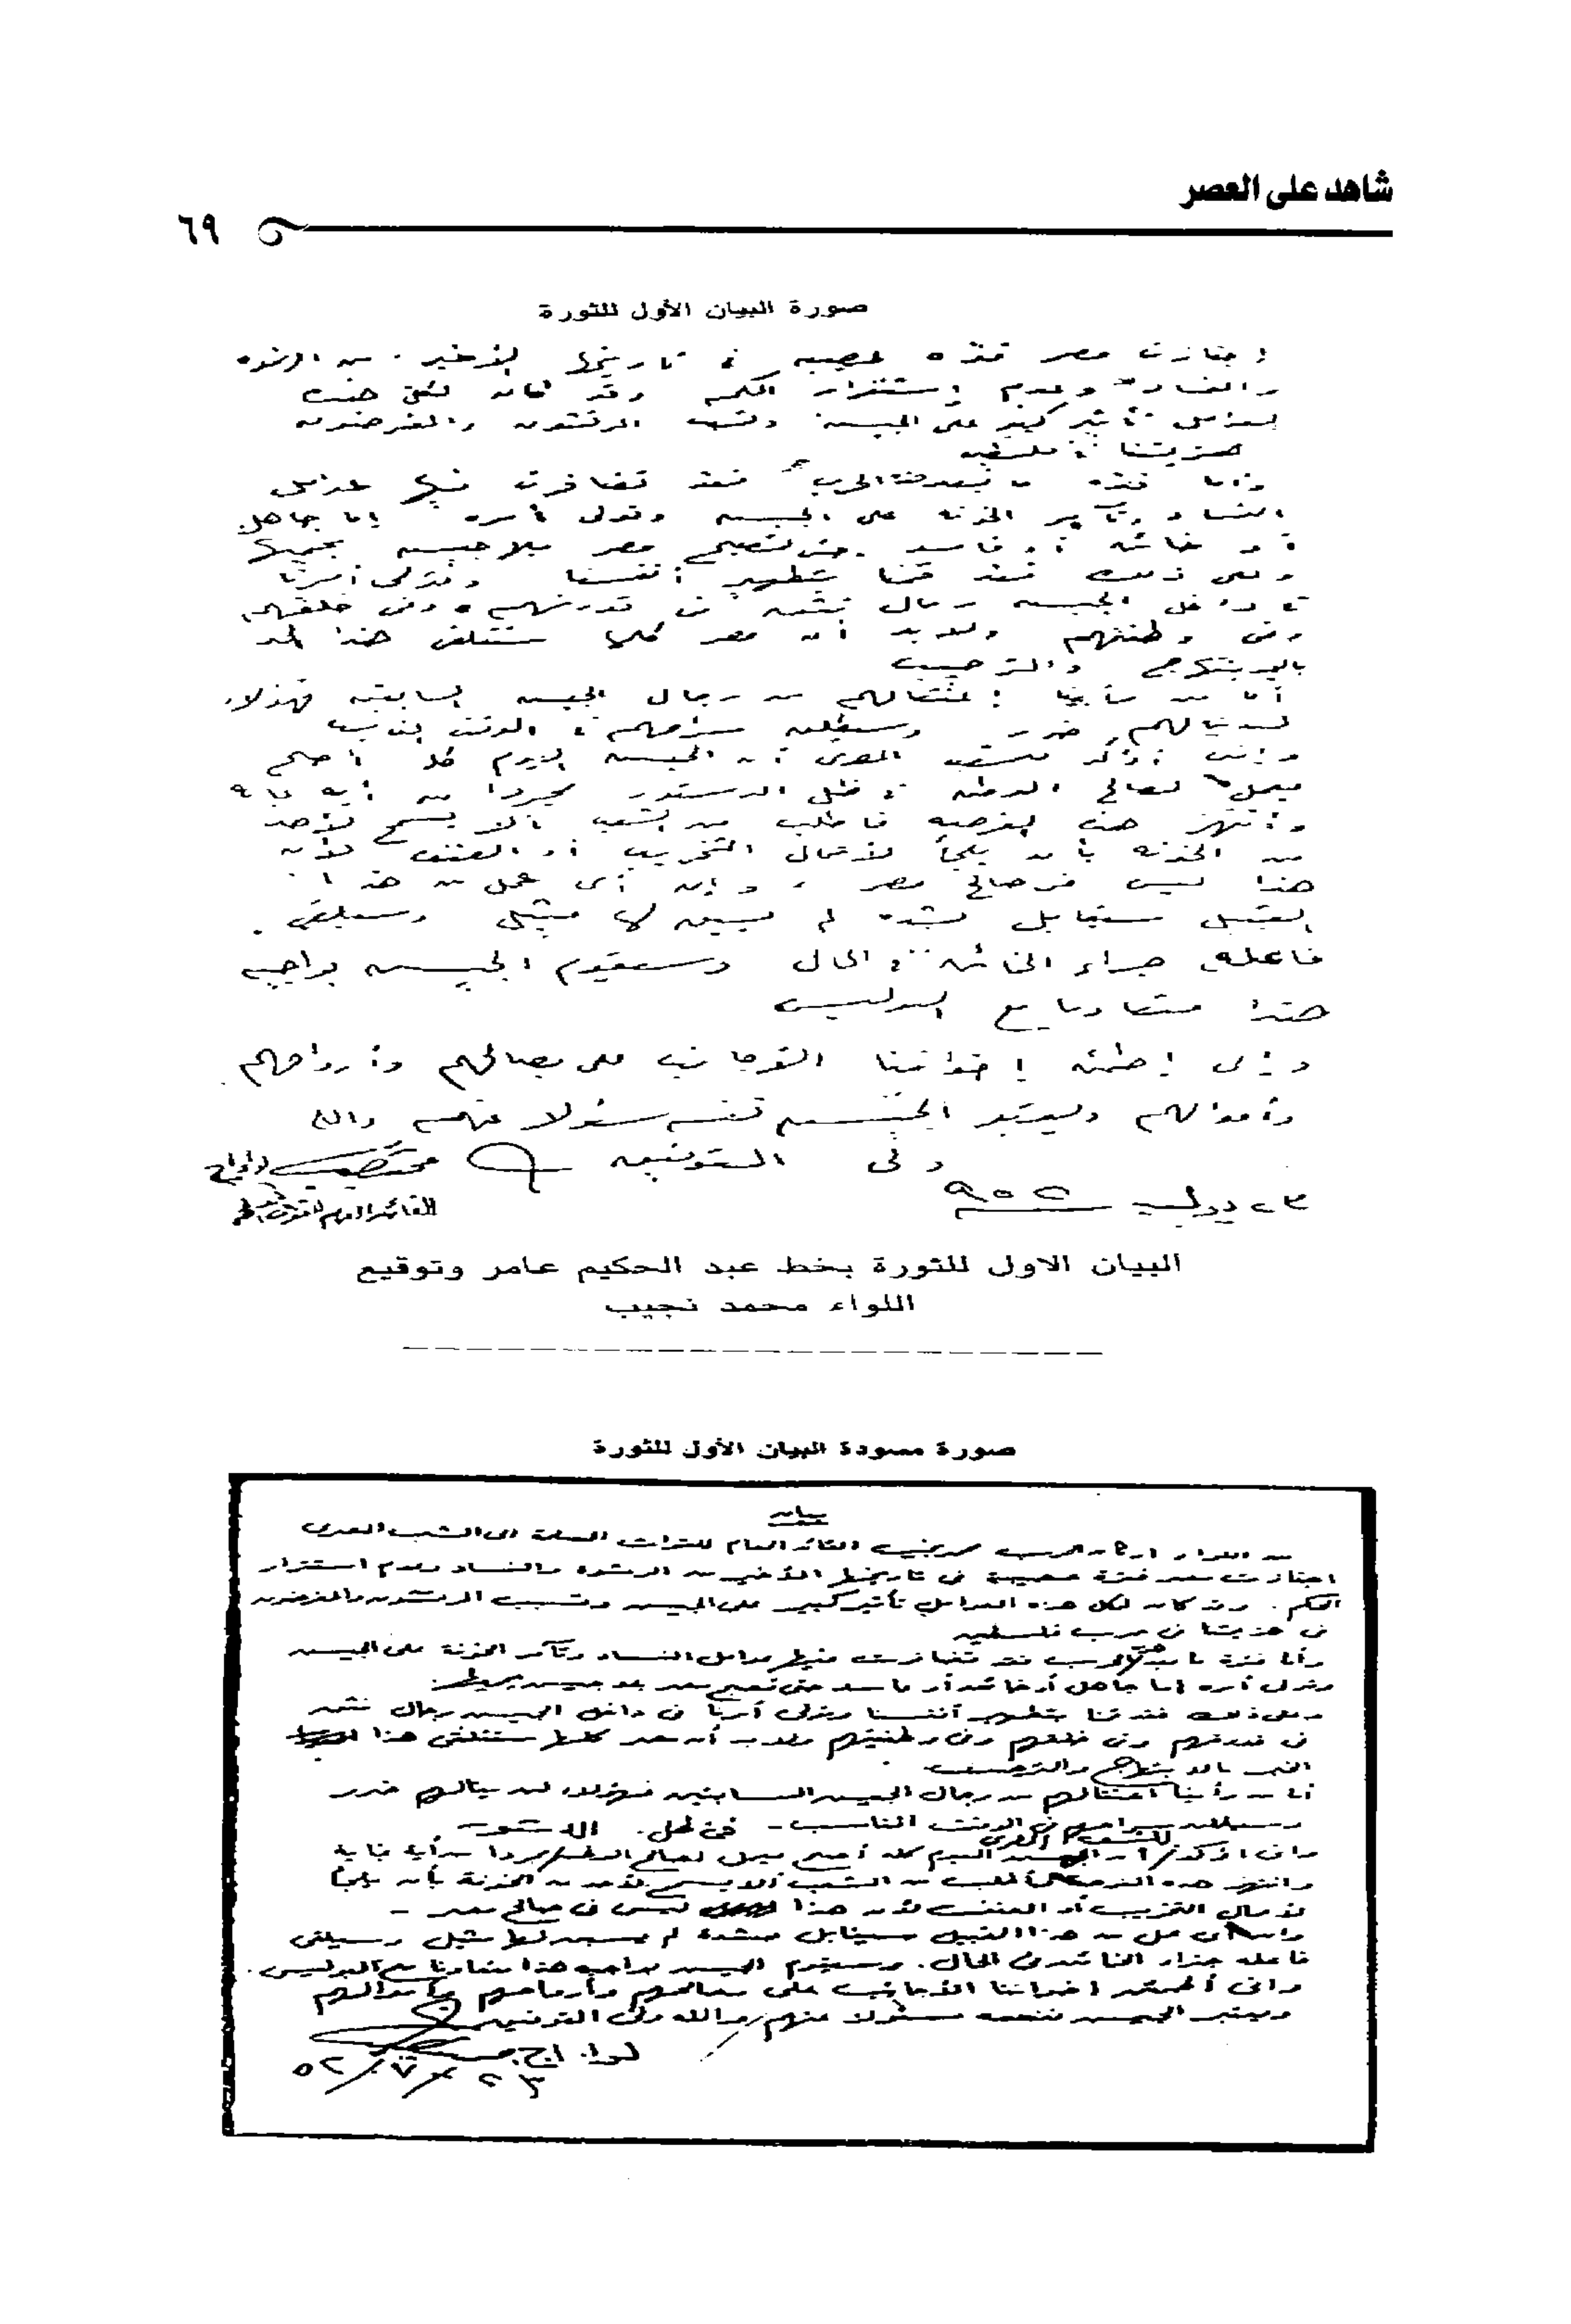 شاهد على العصر
٦٩
صورة البيان الأول للثورة
إجتازت مصر فترة عصيبة فى تاريخها الأخير من الرشوة
والفساد وعدم إستقرار الحكم وقد كان لكل هذه
العوامل تأثير كبير على الجيش وتسبب المرتشون والمغرضون
هزيمتنا فلسطين
وأما فترة ما بعد هذه الحرب فقد تضافرت فيها عوامل
الفساد وتآمر الخونة على الجيش وتولى أمره إما جاهل
أو خائن أو فاسد حتى تصبح مصر بلا جيش يحميها
وعلى ذلك فقد قمنا بتطهير أنفسنا وتولى أمرنا
فى داخل الجيش رجال نثق فى قدرتهم وفى خلقهم
وفى وطنيتهم ولابد أن مصر كلها ستتلقى هذا الخبر
بالإبتهاج والترحيب
أما من رأينا إعتقالهم من رجال الجيش السابقين فهؤلاء
لن ينالهم ضرر وسيطلق سراحهم فى الوقت المناسب
وإنى أؤكد للشعب المصرى أن الجيش اليوم كله أصبح
يعمل لصالح الوطن فى ظل الدستور مجردا من أية غاية
وأنتهز هذه الفرصة فأطلب من الشعب ألا يسمح لأحد
من الخونة بأن يلجأ لأعمال التخريب أو العنف لأن
هذا ليس فى صالح مصر وإن أى عمل من هذا
القبيل سيقابل بشدة لم يسبق لها مثيل وسيلقى
فاعله جزاء الخائن فى الحال وسيقوم الجيش بواجبه
هذا متعاونا مع البوليس
وإنى إطمئن إخواننا الأجانب على مصالحهم وأرواحهم
وأموالهم ويعتبر الجيش نفسه مسئولا عنهم والله
ولى التوفيق
٢٣ يوليو ٩٥٢
البيان الاول للثورة بخط عبد الحكيم عامر وتوقيع
اللواء محمد نجيب
صورة مسودة البيان الأول للثورة
بيان
من اللواء أركان الحرب محمد نجيب القائد العام للقوات المسلحة الى الشعب المصرى
اجتازت مصر فترة عصيبة فى تاريخها الأخير من الرشوة والفساد وعدم استقرار
الحكم . وقد كان لكل هذه العوامل تأثير كبير على الجيش وتسبب المرتشون والمغرضون
فى هزيمتنا فى حرب فلسطين
وأما فترة ما بعد هذه الحرب فقد تضافرت فيها عوامل الفساد وتآمر الخونة على الجيش
وتولى أمره إما جاهل أو خائن أو فاسد حتى تصبح مصر بلا جيش يحميها
وعلى ذلك فقد قمنا بتطهير أنفسنا وتولى أمرنا فى داخل الجيش رجال نثق
فى قدرتهم وفى خلقهم وفى وطنيتهم ولابد أن مصر كلها ستتلقى هذا
الخبر بالابتهاج والترحيب
أما من رأينا اعتقالهم من رجال الجيش السابقين فهؤلاء لن ينالهم ضرر
وسيطلق سراحهم فى الوقت المناسب - فى ظل الدستور
وانى اؤكد للشعب المصرى أن الجيش اليوم كله أصبح يعمل لصالح الوطن مجردا من أية غاية
وانتهز هذه الفرصة فأطلب من الشعب ألا يسمح لأحد من الخونة بأن يلجأ
لأعمال التخريب أو العنف لأن هذا ليس فى صالح مصر -
وان أى عمل من هذا القبيل سيقابل بشدة لم يسبق لها مثيل وسيلقى
فاعله جزاء الخائن فى الحال . وسيقوم الجيش بواجبه هذا متعاونا مع البوليس .
وانى أطمئن اخواننا الأجانب على مصالحهم وأرواحهم وأموالهم
ويعتبر الجيش نفسه مسئولا عنهم والله ولى التوفيق
لواء أ.ح.
٢٣ / ٧ / ٥٢